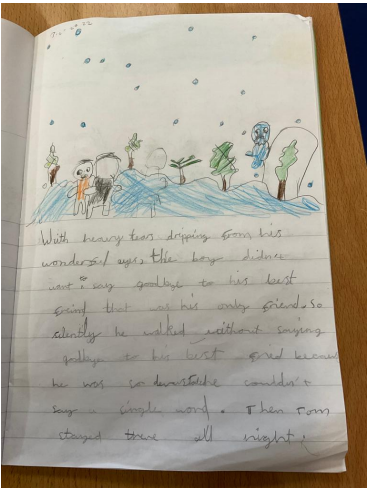 With heavy tears dripping from his
wonderful eyes, the boy didnt
want to say goodbye to his best
friend that was his only friend. So
silently he walked without saying
goodbye to his best fried because
he was so devastate couldn't
say a single word. Then Tom
stayed there all night!